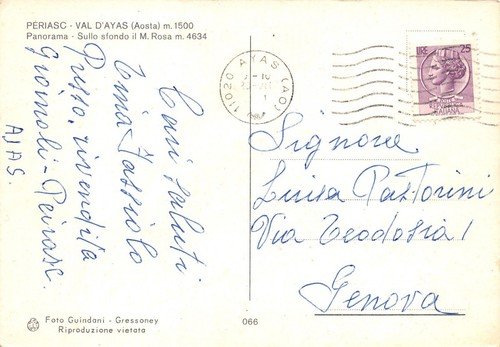 PERIASC - VAL D'AYAS (Aosta) m. 1500
Panorama - Sullo sfondo il M. Rosa m. 4634
11020 AYAS (AO)
LIRE 25
Cari saluti
Tina Fassiolo
Presso rivendita
Periasc.
AJAS.
Signore
Luisa Pastorini
Via Teodosia 1
Genova
Foto Guindani - Gressoney
Riproduzione vietata
066